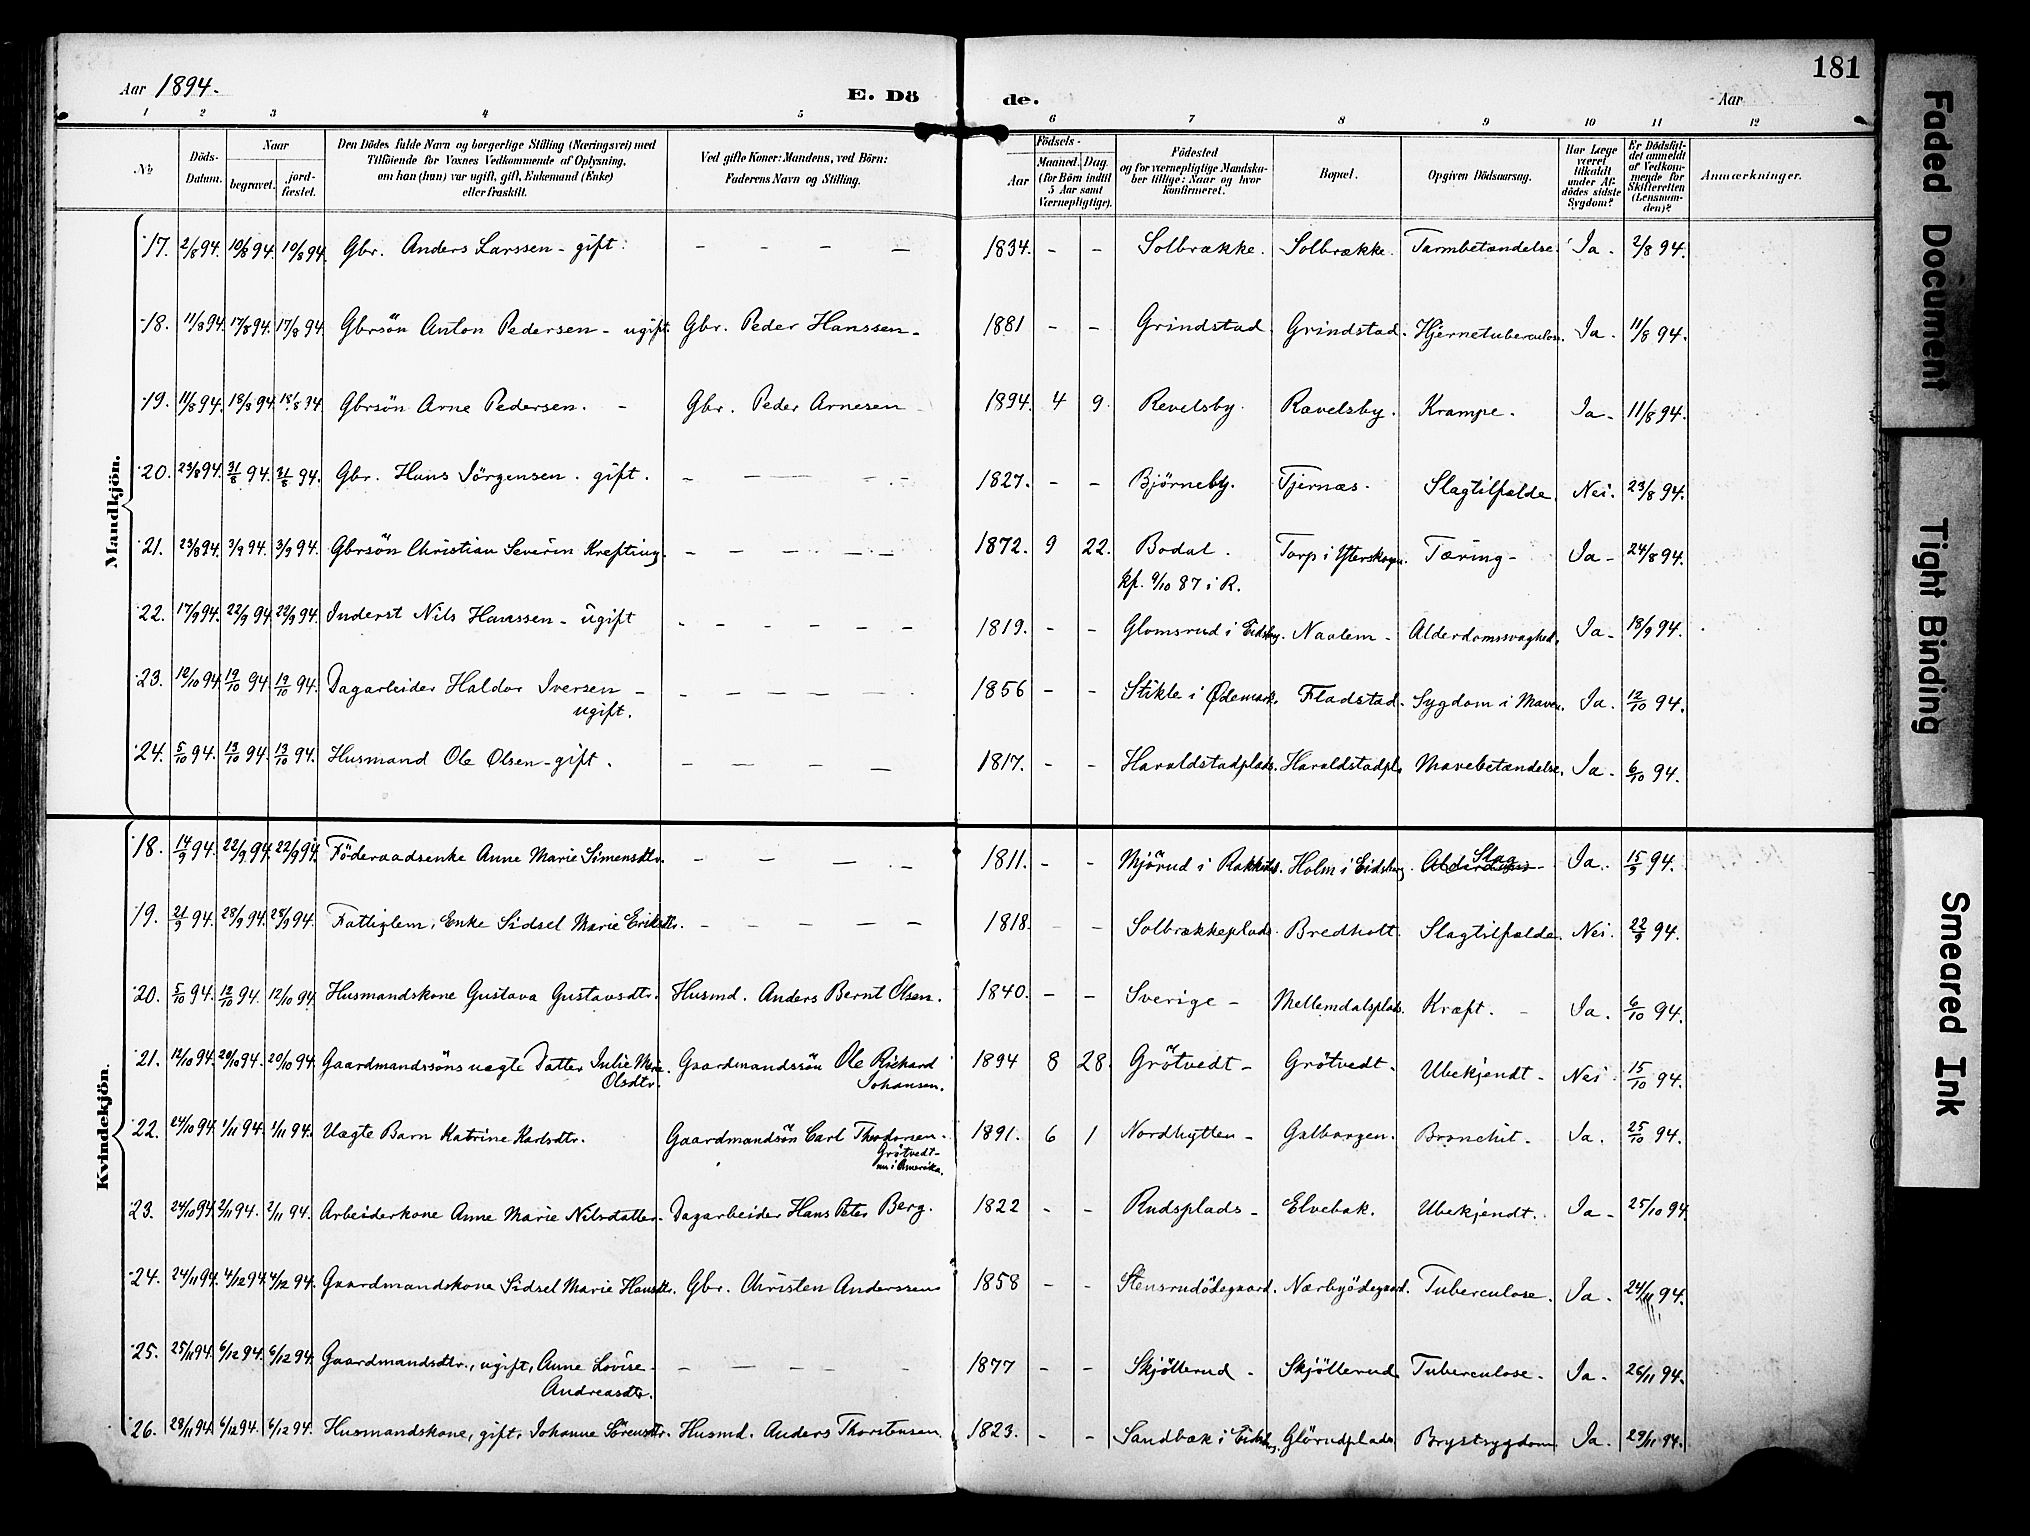 Aar 1894.
E. Dö de.
181
Aar
1 2 3 4 5 6 7 8 9 10 11 12
No
Döds-Datum.
Naar
begravet.
jord-fæstet.
Den Dödes fulde Navn og borgerlige Stilling (Næringsvei) med
Tilföiende for Voxnes Vedkommende af Oplysning,
om han (hun) var ugift, gift, Enkemand (Enke)
eller fraskilt.
Ved gifte Koner: Mandens, ved Börn:
Faderens Navn og Stilling.
Födsels-
Aar
Maaned. Dag.
(for Börn indtil
5 Aar samt
Værnepligtige).
Födested
og for værnepligtige Mandska-
ber tillige: Naar og hvor
konfirmeret.
Bopæl.
Opgiven Dödsaarsag.
Har Læge
været
tilkaldt
under Af-
dödes sidste
Sygdom?
Er Dödsfal-
det anmeldt
af Vedkom-
mende for
Skifteretten
(Lensman-
den)?
Anmærkninger.
Mandkjön.
17. 2/8 94. 10/8 94. 10/8 94. Gbr. Anders Larssen - gift. - - - - 1834. - - Solbrække. Solbrække. Tarmbetændelse. Ja. 2/8 94.
18. 11/8 94. 17/8 94. 17/8 94. Gbrsön Anton Pedersen - ugift. Gbr. Peder Hanssen - 1881 - - Grindstad. Grindstad. Hjernetuberculose. Ja. 11/8 94.
19. 11/8 94. 18/8 94. 18/8 94. Gbrsön Arne Pedersen. - Gbr. Peder Arnesen 1894. 4 9. Revelsby. Ravelsby. Krampe. Ja - 11/8 94.
20. 23/8 94. 31/8 94. 31/8 94. Gbr. Hans Jörgensen. gift. - - - - 1827. - - Bjørneby. Tjernæs. Slagtilfælde. Nei. 23/8 94.
21. 23/8 94. 3/9 94. 3/9 94. Gbrsön Christian Severin Krefting. - - - - - 1872. 9 22. Bodal. Torp i Ytterskogen. Tæring - Ja - 24/8 94.
kf. 9/10 87 i R.
22. 17/9 94. 22/9 94. 22/9 94. Inderst Nils Hanssen - ugift - - - - - 1819. - - Glomsrud i Eidsbg. Naalem - Alderdomssvaghed. Ja - 18/9 94.
23. 12/10 94. 19/10 94. 19/10 94. Dagarbeider Haldor Iversen - - - - - - 1856 - - Stikle i Ødemark. Fladstad. Sygdom i Maven. Ja. 12/10 94.
ugift.
24. 5/10 94. 13/10 94. 13/10 94. Husmand Ole Olsen - gift. - - - - 1817. - - Haraldstadplads. Haraldstadpl. Mavebetændelse. Ja - 6/10 94.
Kvindekjön.
18. 14/9 94. 22/9 94. 22/9 94. Föderaadsenke Anne Marie Simensdtr. - - - - 1811. - - Mjörud i Rakkestd. Holm i Eidsberg. Slag Ja. 15/9 94.
19. 21/9 94. 28/9 94. 28/9 94. Fattiglem, Enke Sidsel Marie Eriksdtr. - - - - - 1818. - - Solbrækkeplads. Bredholt. Slagtilfælde. Nei. 22/9 94.
20. 5/10 94. 12/10 94. 12/10 94. Husmandskone Gustava Gustavsdtr. Husmd. Anders Bernt Olsen. 1840. - - Sverige - Mellemdalsplads. Kræft. - Ja. 6/10 94.
21. 12/10 94. 20/10 94. 20/10 94. Gaardmandssöns uægte Datter Julie Marie Gaardmandssön Ole Rickard 1894 8 28. Grötvedt - Grötvedt. Ubekjendt - Nei. 15/10 94.
Olsdtr. Johansen.
22. 24/10 94. 1/11 94. 1/11 94. Uægte Barn Katrine Karlsdtr. Gaardmandsön Carl Thodorsen - 1891. 6 1 Nordhytten - Galbargen. Bronchit. Ja. 25/10 94.
Grötvedt - nu i Amerika.
23. 24/10 94. 2/11 94. 2/11 94. Arbeiderkone Anne Marie Nilsdatter - Dagarbeider Hans Peter Berg. 1822 - - Rudsplads - Elvebak. Ubekjendt. Ja - 25/10 94.
24. 24/11 94. 4/12 94. 4/12 94. Gaardmandskone Sidsel Marie Hansdtr. Gbr. Christen Anderssen 1858 - - Stensrudödegaard. Nærbyödegaard. Tuberculose. Ja. 24/11 94.
25. 25/11 94. 6/12 94. 6/12 94. Gaardmandsdtr., ugift, Anne Lovise - - - - - 1877 - - Skjölterud - Skjölterud. Tuberculose. Ja. 26/11 94.
Andreasdtr.
26. 28/11 94. 6/12 94. 6/12 94. Husmandskone, gift, Johanne Sörensdtr. Husmd. Anders Thorstensen 1823. - - Sandbæk i Eidsbg. Glörudplads Brystsygdom Ja. 29/11 94.
Faded Document
Tight Binding
Smeared Ink